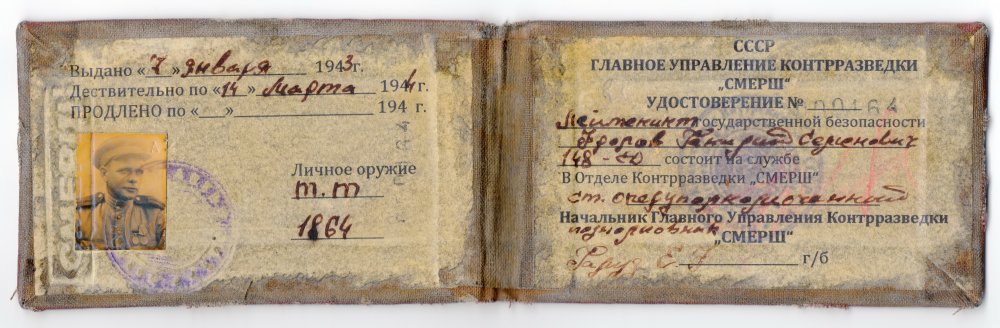 Выдано «7» января 1943г.
Дествительно по «14» Марта 1944 г.
ПРОДЛЕНО по «__» 194 г.
Личное оружие
т.т
1864
СССР
ГЛАВНОЕ УПРАВЛЕНИЕ КОНТРРАЗВЕДКИ
„СМЕРШ“
УДОСТОВЕРЕНИЕ № 00164
Лейтенант государственной безопасности
Семенович
148 - состоит на службе
В Отделе Контрразведки „СМЕРШ“
ст.
Начальник Главного Управления Контрразведки
„СМЕРШ“
г/б